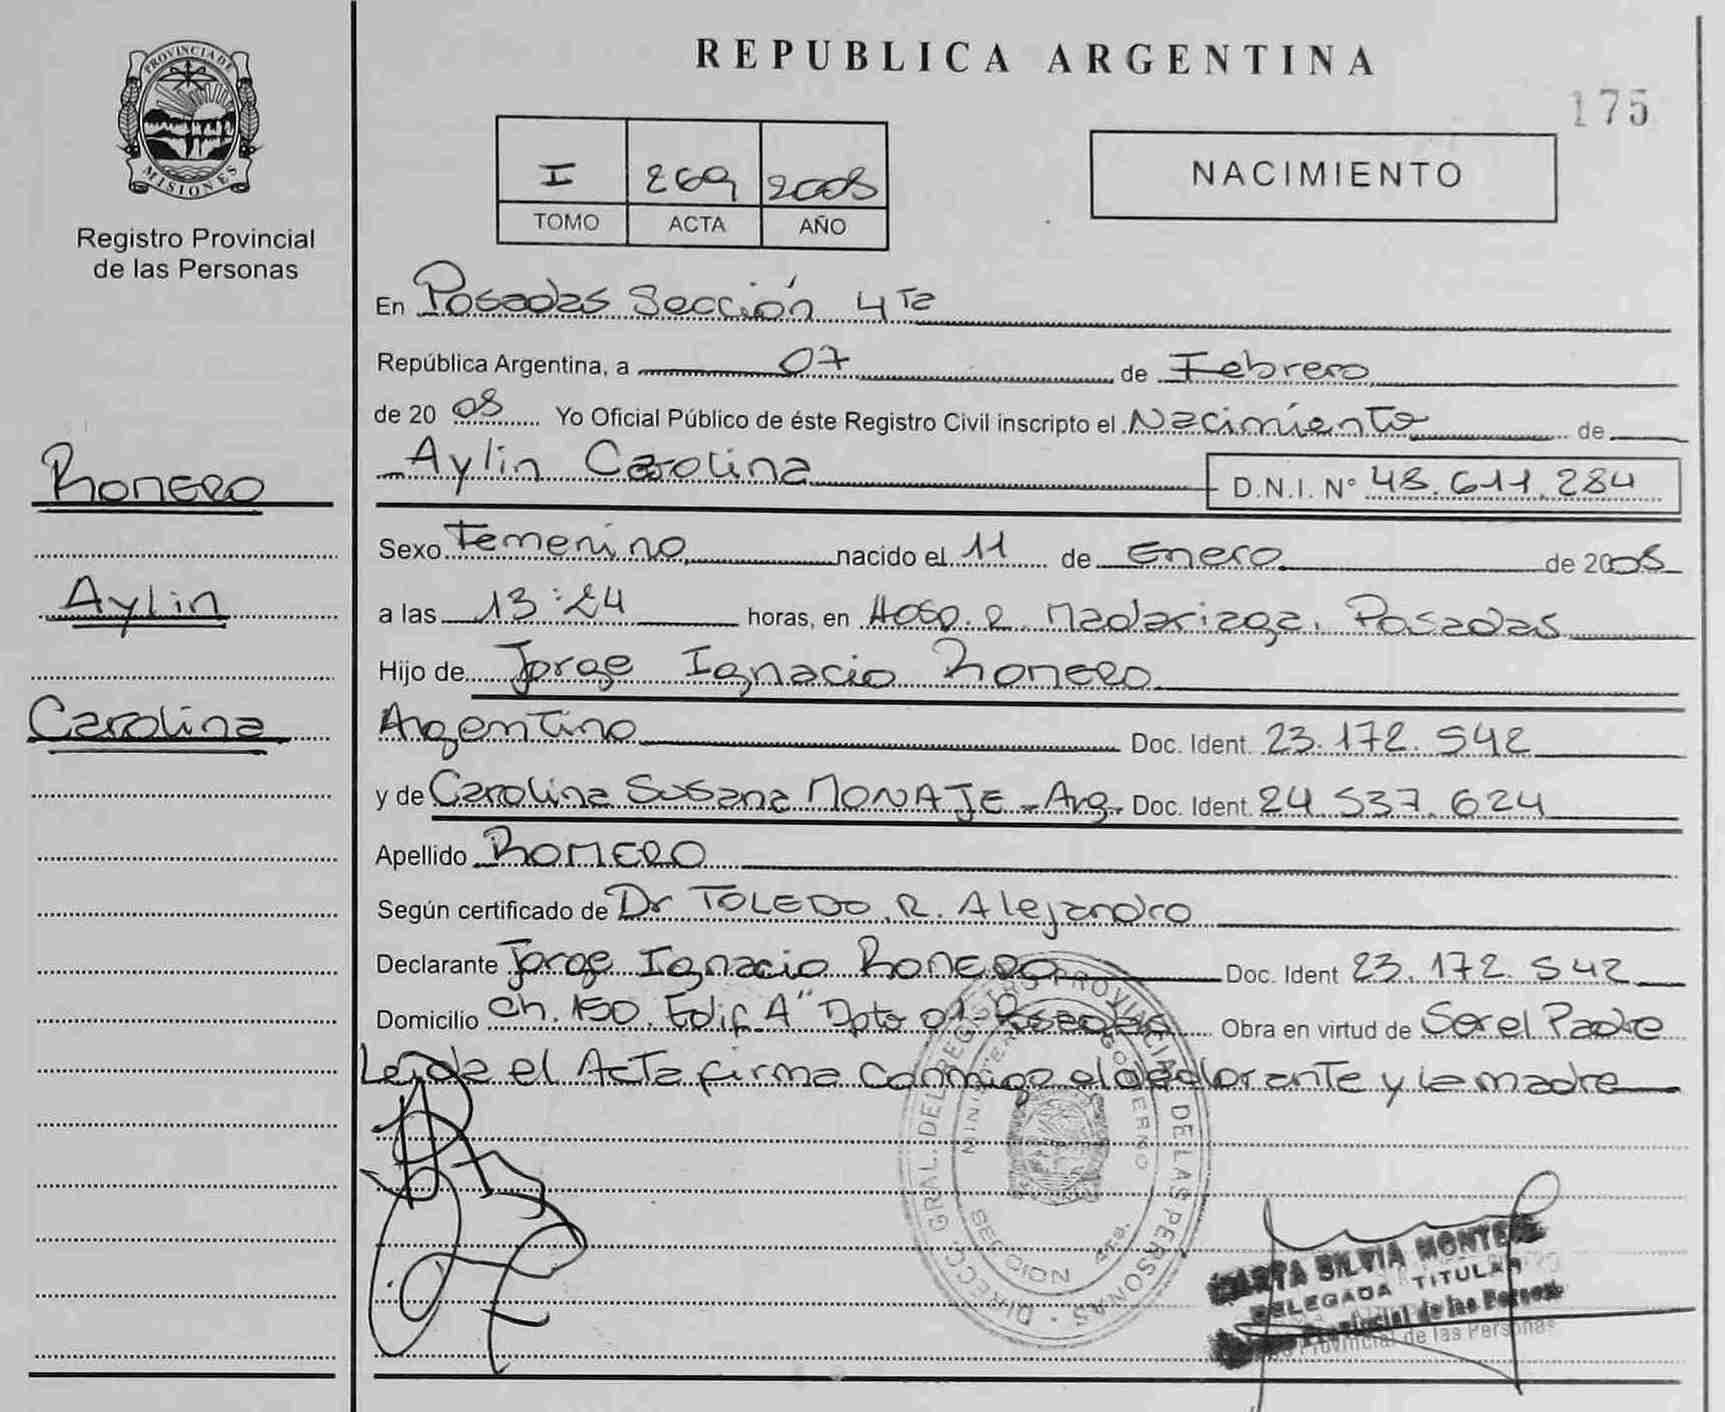 PROVINCIA DE
MISIONES
Registro Provincial
de las Personas
Romero
Aylin
Carolina
REPUBLICA ARGENTINA
175
I 269 2008
TOMO ACTA AÑO
NACIMIENTO
En Posadas Sección 4ta
República Argentina, a 07 de Febrero
de 2008 Yo Oficial Público de éste Registro Civil inscripto el Nacimiento de
Aylin Carolina D.N.I. N° 48.611.284
Sexo Femenino nacido el 11 de Enero de 2008
a las 13:24 horas, en Hosp. R. Madariaga. Posadas
Hijo de Jorge Ignacio Romero
Argentino Doc. Ident. 23.172.542
y de Carolina Susana MONAJE - Arg. Doc. Ident. 24.537.624
Apellido ROMERO
Según certificado de Dr TOLEDO R. Alejandro
Declarante Jorge Ignacio Romero Doc. Ident 23.172.542
Domicilio Ch. 150. Edif. A" Dpto 01. Posadas Obra en virtud de Ser el Padre
Leida el Acta firma conmigo el declarante y la madre
DIRECC. GRAL. DEL REGISTRO PROVINCIAL DE LAS PERSONAS
MINISTERIO GOBIERNO
SECCION 4ta.
MARTA SILVIA
DELEGADA TITULAR
Provincial de las Personas